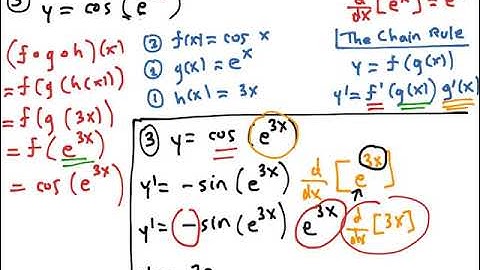 ③ y = cos (e
d/dx [e^x] = e
(f∘g∘h)(x)
= f(g(h(x))
= f(g(3x)
= f(e^3x)
= cos(e^3x)
② f(x) = cos x
② g(x) = e^x
① h(x) = 3x
The Chain Rule
y = f(g(x))
y' = f'(g(x)) g'(x)
③ y = cos e^3x
y' = -sin(e^3x) d/dx [e^3x]
y' = -sin(e^3x) e^3x d/dx [3x]